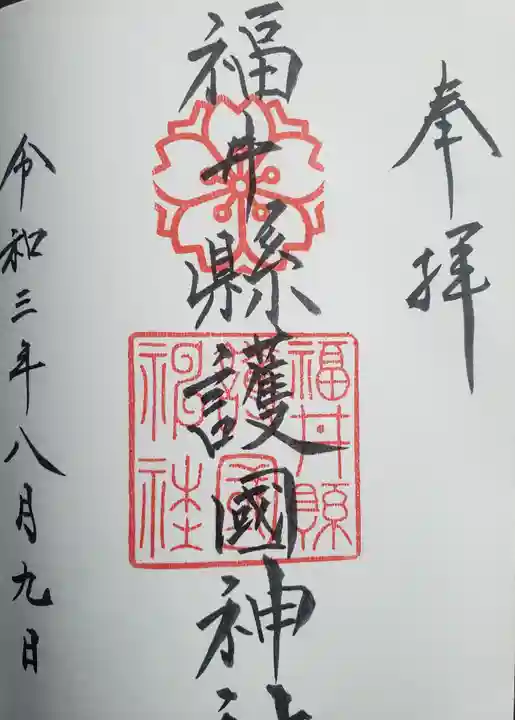 奉拝
福井縣護國神社
福井縣護國神社
令和三年八月九日